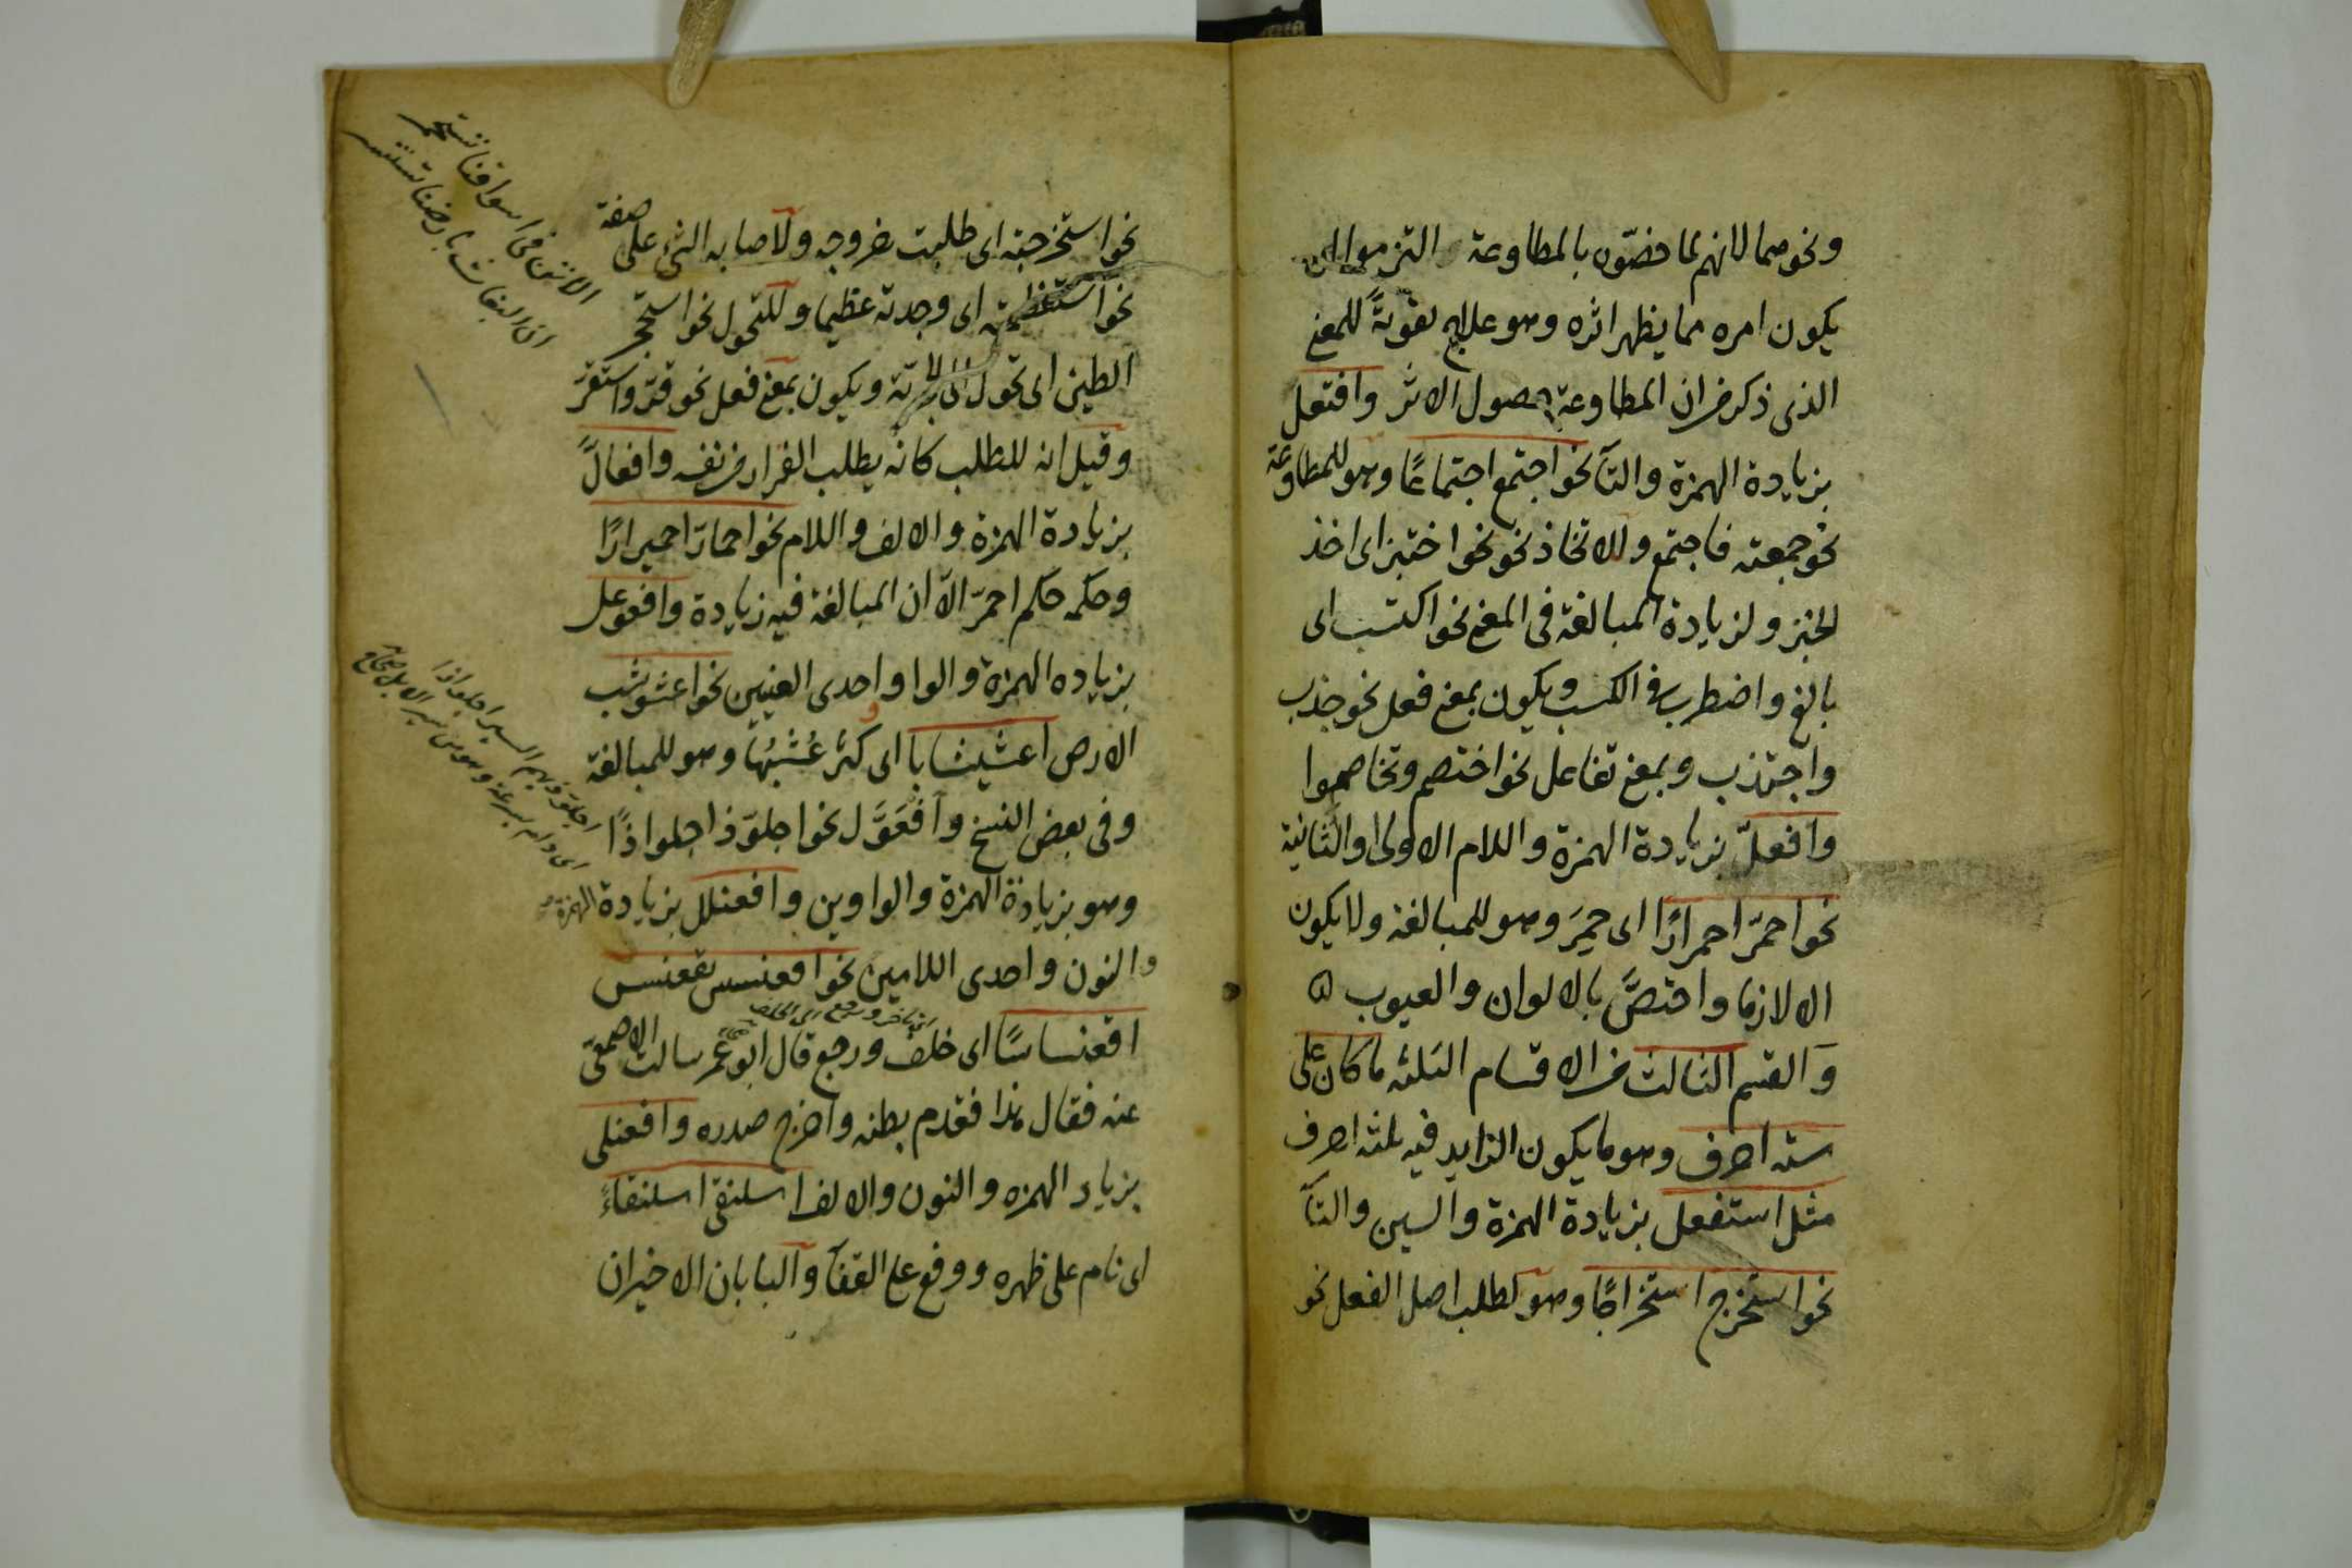 ونحوهما لانهم لما خصّوه بالمطاوعة التزموا ان
يكون امره مما يظهر اثره وهو علاج تقويةً للمعنى
الذى ذكر من ان المطاوعة حصول الاثر وافتعل
بزيادة الهمزة والتآ نحو اجتمع اجتماعًا وهو للمطاوعة
نحو جمعته فاجتمع وللاتخاذ نحو نحو اختبز اى اخذ
الخبز ولزيادة المبالغة فى المعنى نحو اكتسب اى
بالغ واضطرب فى الكسب ويكون بمعنى فعل نحو جذب
واجتذب وبمعنى تفاعل نحو اختصم وتخاصموا
وافعلّ بزيادة الهمزة واللام الاولى او الثانية
نحو احمرّ احمرارًا اى حمِرَ وهو للمبالغة ولا يكون
الا لازما واختصَّ بالالوان والعيوب ٥
وَالقسم الثالث من الاقسام الثلثه ما كان على
سته احرف وهو ما يكون الزايد فيه ثلثه احرف
مثل استفعل بزيادة الهمزة والسين والتآ
نحو استخرج استخراجًا وهو لطلب اصل الفعل نحو
نحو استخرجته اى طلبت خروجه ولاصابه الشئ على صفة
نحو استعظمته اى وجدته عظيما وللتحول نحو استحجر
الطين اى تحول الى الحجرية ويكون بمعنى فعل نحو قرّ واستقرّ
وقيل انه للطلب كانه يطلب القرار من نفسه وافعالَّ
بزيادة الهمزة والالف واللام نحو احمارّ احميرارًا
وحكمه حكم احمرّ الّا ان المبالغة فيه زيادة وافعوعل
بزياده الهمزة والواو واحدى العينين نحو اعشوشب
الارض اعشيشابا اى كثر عُشْبُهَا وهو للمبالغة
وفى بعض النسخ وافعَوَّل نحو اجلوّذ اجلواذًا
وهو بزيادة الهمزة والواوين وافعنلل بزيادة الهمزة
والنون واحدى اللامين نحو اقعنسس يقعنسس
اقعنساسًا اى خلف ورجع قال ابو عمر سالت الاصمعىّ
عنه فقال هكذا فقدم بطنه واخرج صدره وافعنلى
بزياد الهمزه والنون والالف اسلنقى اسلنقاءً
اى نام على ظهره ووقع على القفآ والبابان الاخيران
ان البغاث بارضنا تستنسر
الاتن فى اسواقنا تستحمر
اجلوّذ بهم السير اجلواذا
اى دام بسرعة وهو من سير الابل صحاح